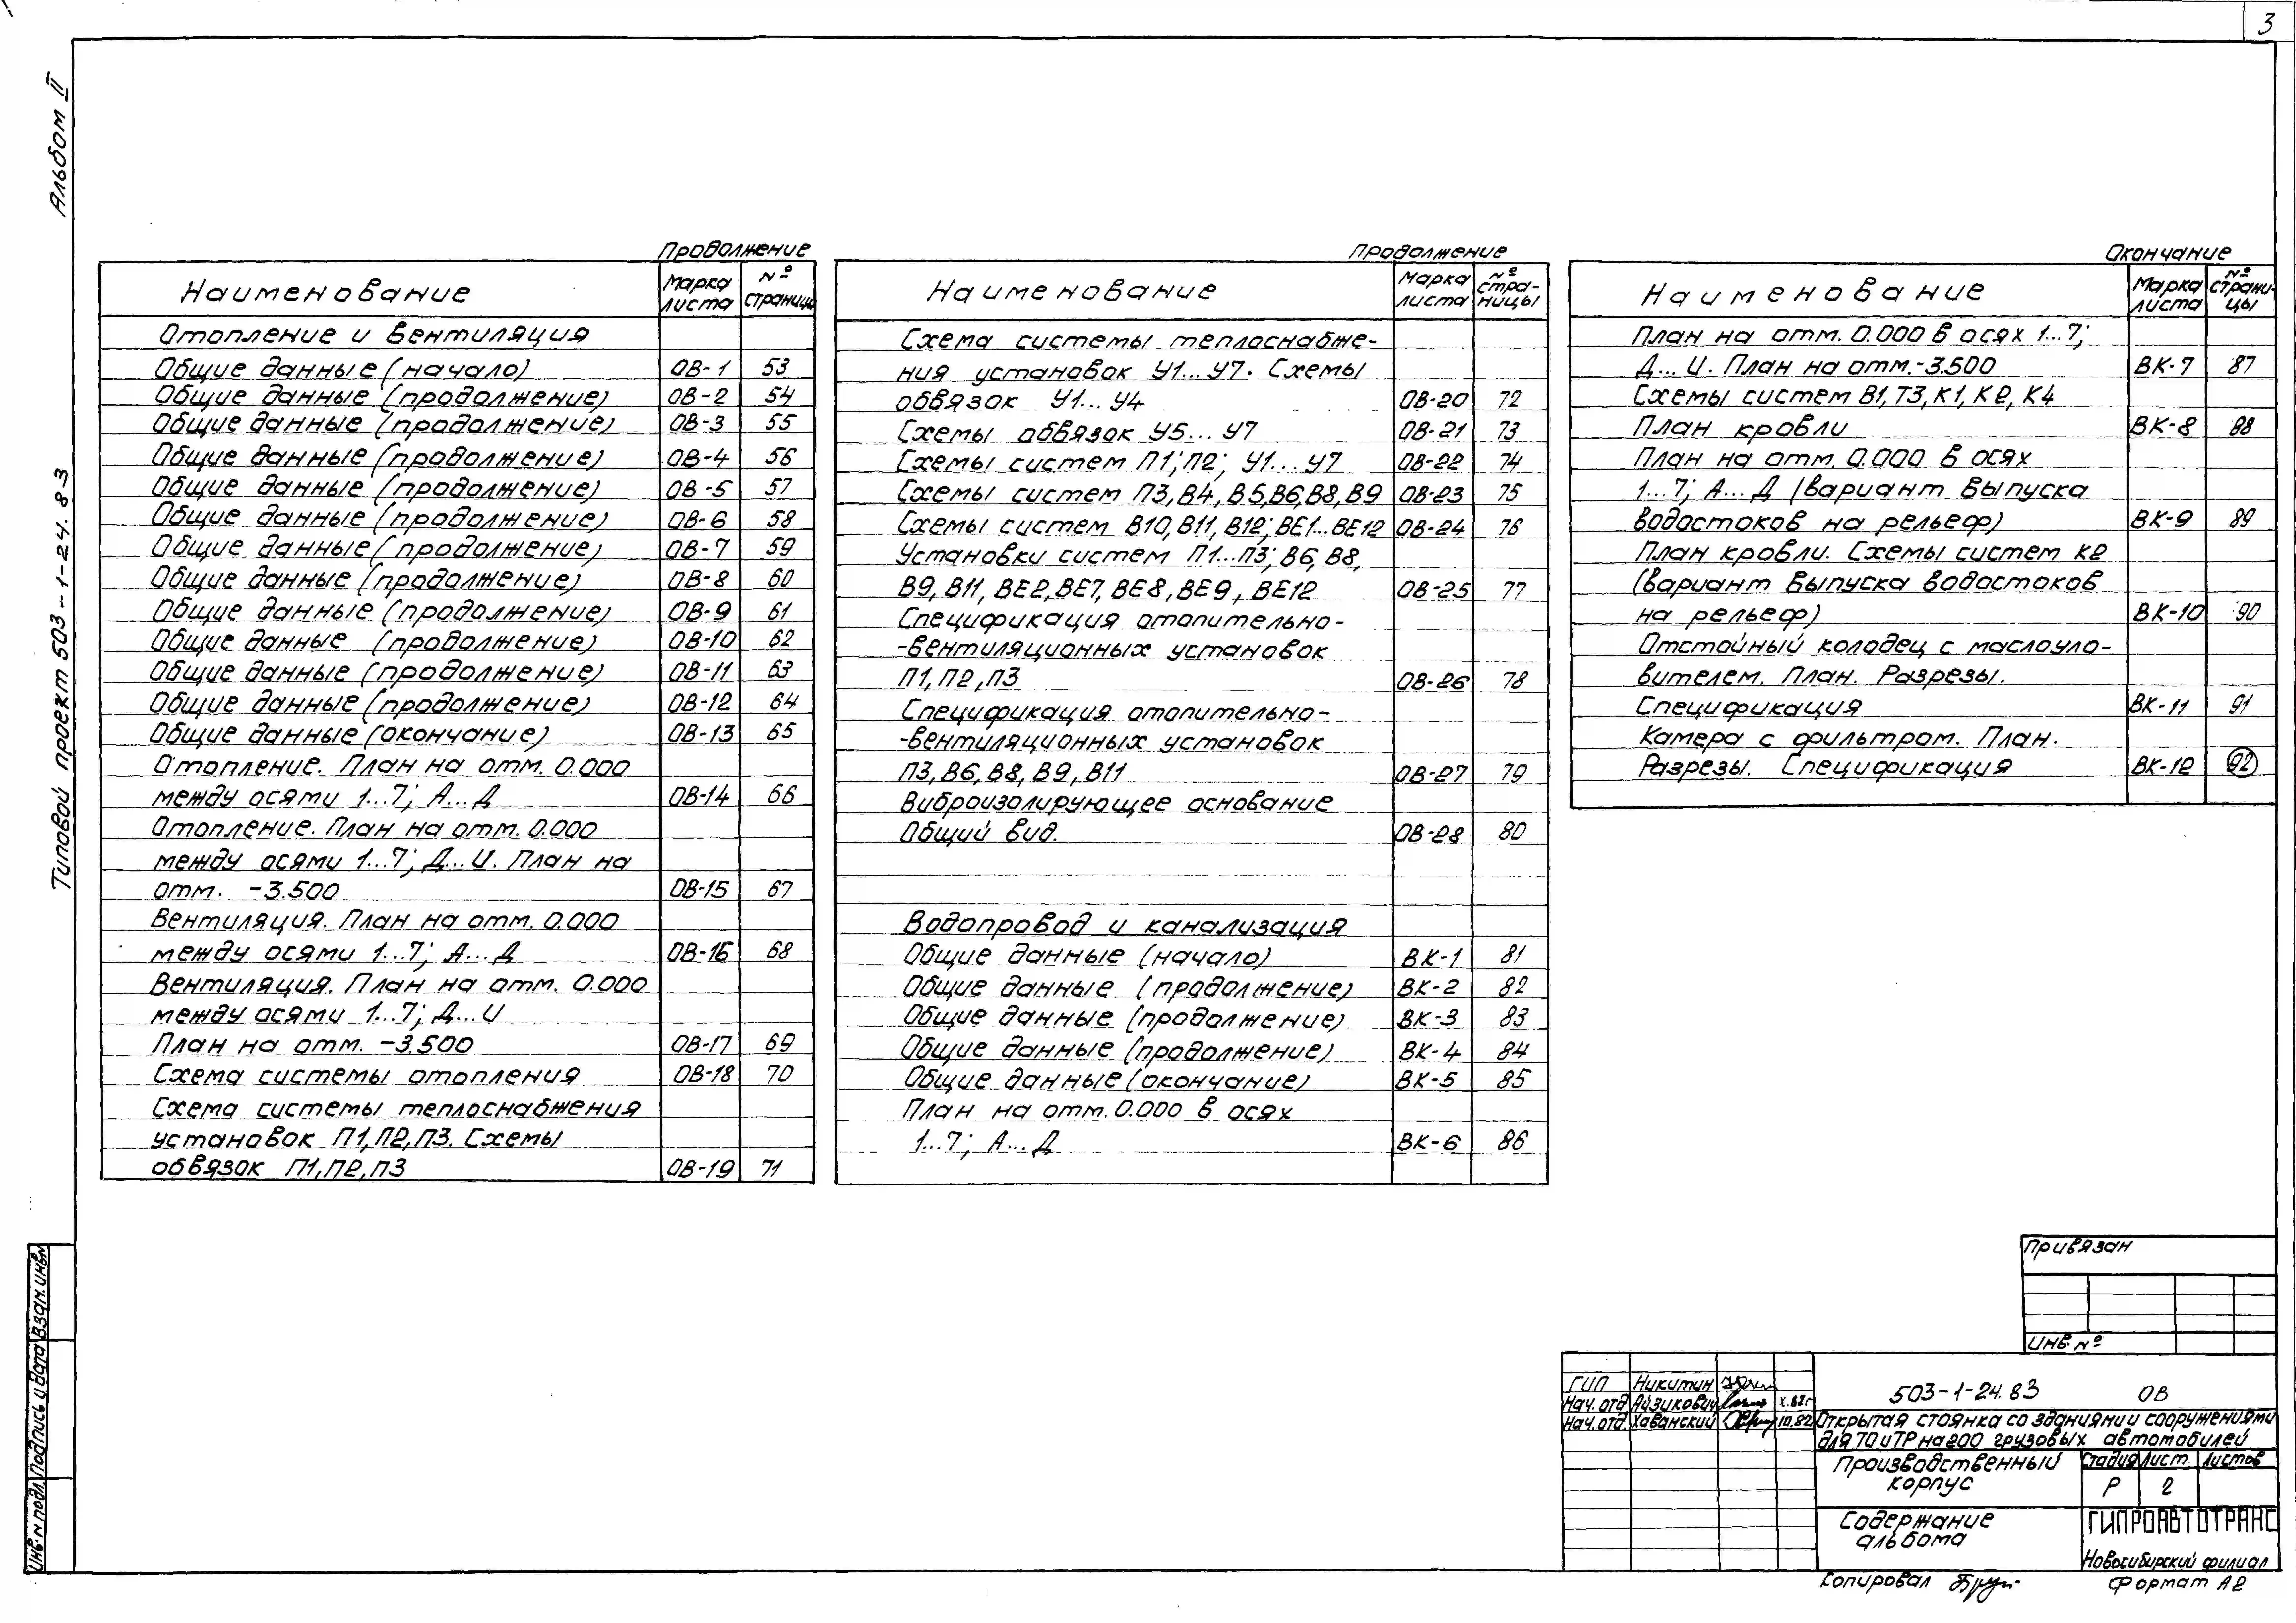 3
Альбом II
Типовой проект 503-1-24.83
Продолжение
Наименование
Марка листа
№ страницы
Отопление и вентиляция
Общие данные (начало) ОВ-1 53
Общие данные (продолжение) ОВ-2 54
Общие данные (продолжение) ОВ-3 55
Общие данные (продолжение) ОВ-4 56
Общие данные (продолжение) ОВ-5 57
Общие данные (продолжение) ОВ-6 58
Общие данные (продолжение) ОВ-7 59
Общие данные (продолжение) ОВ-8 60
Общие данные (продолжение) ОВ-9 61
Общие данные (продолжение) ОВ-10 62
Общие данные (продолжение) ОВ-11 63
Общие данные (продолжение) ОВ-12 64
Общие данные (окончание) ОВ-13 65
Отопление. План на отм. 0.000
между осями 1...7; А...Д ОВ-14 66
Отопление. План на отм. 0.000
между осями 1...7; Д...И. План на
отм. -3.500 ОВ-15 67
Вентиляция. План на отм. 0.000
между осями 1...7; А...Д ОВ-16 68
Вентиляция. План на отм. 0.000
между осями 1...7; Д...И
План на отм. -3.500 ОВ-17 69
Схема системы отопления ОВ-18 70
Схема системы теплоснабжения
установок П1,П2,П3. Схемы
обвязок П1,П2,П3 ОВ-19 71
Продолжение
Наименование
Марка листа
№ страницы
Схема системы теплоснабже-
ния установок У1...У7. Схемы
обвязок У1...У4 ОВ-20 72
Схемы обвязок У5...У7 ОВ-21 73
Схемы систем П1; П2; У1...У7 ОВ-22 74
Схемы систем П3,В4,В5,В6,В8,В9 ОВ-23 75
Схемы систем В10,В11,В12; ВЕ1...ВЕ12 ОВ-24 76
Установки систем П1...П3; В6, В8,
В9, В11, ВЕ2,ВЕ7, ВЕ8,ВЕ9, ВЕ12 ОВ-25 77
Спецификация отопительно-
-вентиляционных установок
П1, П2, П3 ОВ-26 78
Спецификация отопительно-
-вентиляционных установок
П3, В6, В8, В9, В11 ОВ-27 79
Виброизолирующее основание
Общий вид. ОВ-28 80
Водопровод и канализация
Общие данные (начало) ВК-1 81
Общие данные (продолжение) ВК-2 82
Общие данные (продолжение) ВК-3 83
Общие данные (продолжение) ВК-4 84
Общие данные (окончание) ВК-5 85
План на отм. 0.000 в осях
1...7; А...Д ВК-6 86
Окончание
Наименование
Марка листа
№ страницы
План на отм. 0.000 в осях 1...7;
Д...И. План на отм.-3.500 ВК-7 87
Схемы систем В1, Т3, К1, К2, К4
План кровли ВК-8 88
План на отм. 0.000 в осях
1...7; А...Д (вариант выпуска
водостоков на рельеф) ВК-9 89
План кровли. Схемы систем К2
(вариант выпуска водостоков
на рельеф) ВК-10 90
Отстойный колодец с маслоуло-
вителем. План. Разрезы.
Спецификация ВК-11 91
Камера с фильтром. План.
Разрезы. Спецификация ВК-12 92
Привязан
Инв. №
ГИП Никитин
Нач. отд Айзикович X.82г
Нач. отд Хаванский 10.82
503-1-24.83 ОВ
Открытая стоянка со зданиями и сооружениями
для ТО и ТР на 200 грузовых автомобилей
Производственный
корпус
Стадия Лист Листов
Р 2
Содержание
альбома
ГИПРОАВТОТРАНС
Новосибирский филиал
Копировал
Формат А2
Инв. N подл. Подпись и дата Взам. инв. N